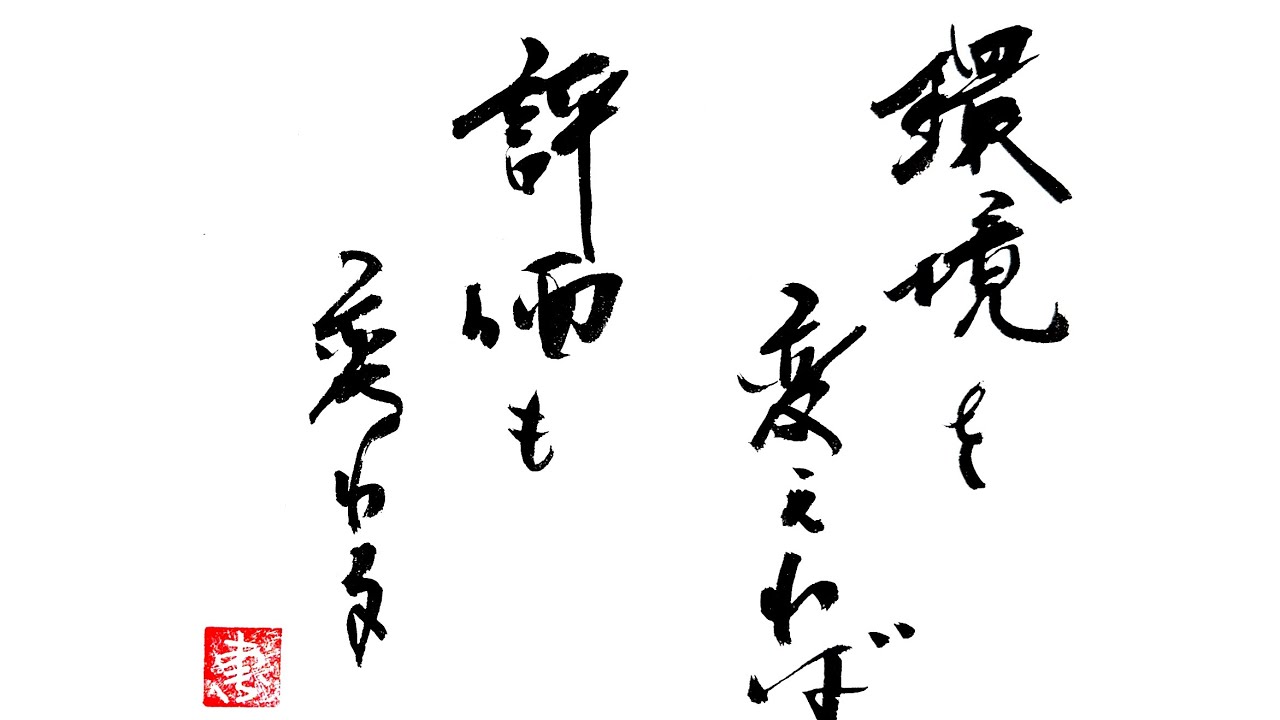 環境を
変えれば
評価も
変わる